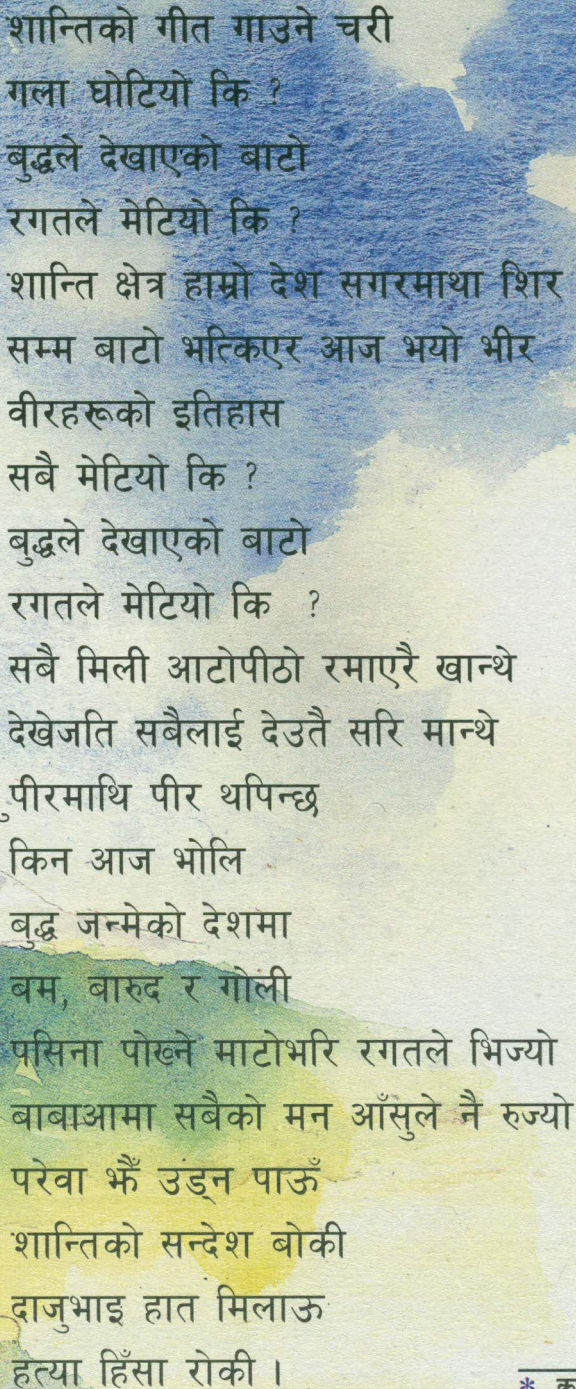 शान्तिको गीत गाउने चरी
गला घोटियो कि ?
बुद्धले देखाएको बाटो
रगतले मेटियो कि ?
शान्ति क्षेत्र हाम्रो देश सगरमाथा शिर
सम्म बाटो भत्किएर आज भयो भीर
वीरहरूको इतिहास
सबै मेटियो कि ?
बुद्धले देखाएको बाटो
रगतले मेटियो कि ?
सबै मिली आटोपीठो रमाएरै खान्थे
देखेजति सबैलाई देउतै सरि मान्थे
पीरमाथि पीर थपिन्छ
किन आज भोलि
बुद्ध जन्मेको देशमा
बम, बारुद र गोली
पसिना पोख्ने माटोभरि रगतले भिज्यो
बाबाआमा सबैको मन आँसुले नै रुज्यो
परेवा झैँ उड्न पाऊँ
शान्तिको सन्देश बोकी
दाजुभाइ हात मिलाऊ
हत्या हिँसा रोकी ।
*